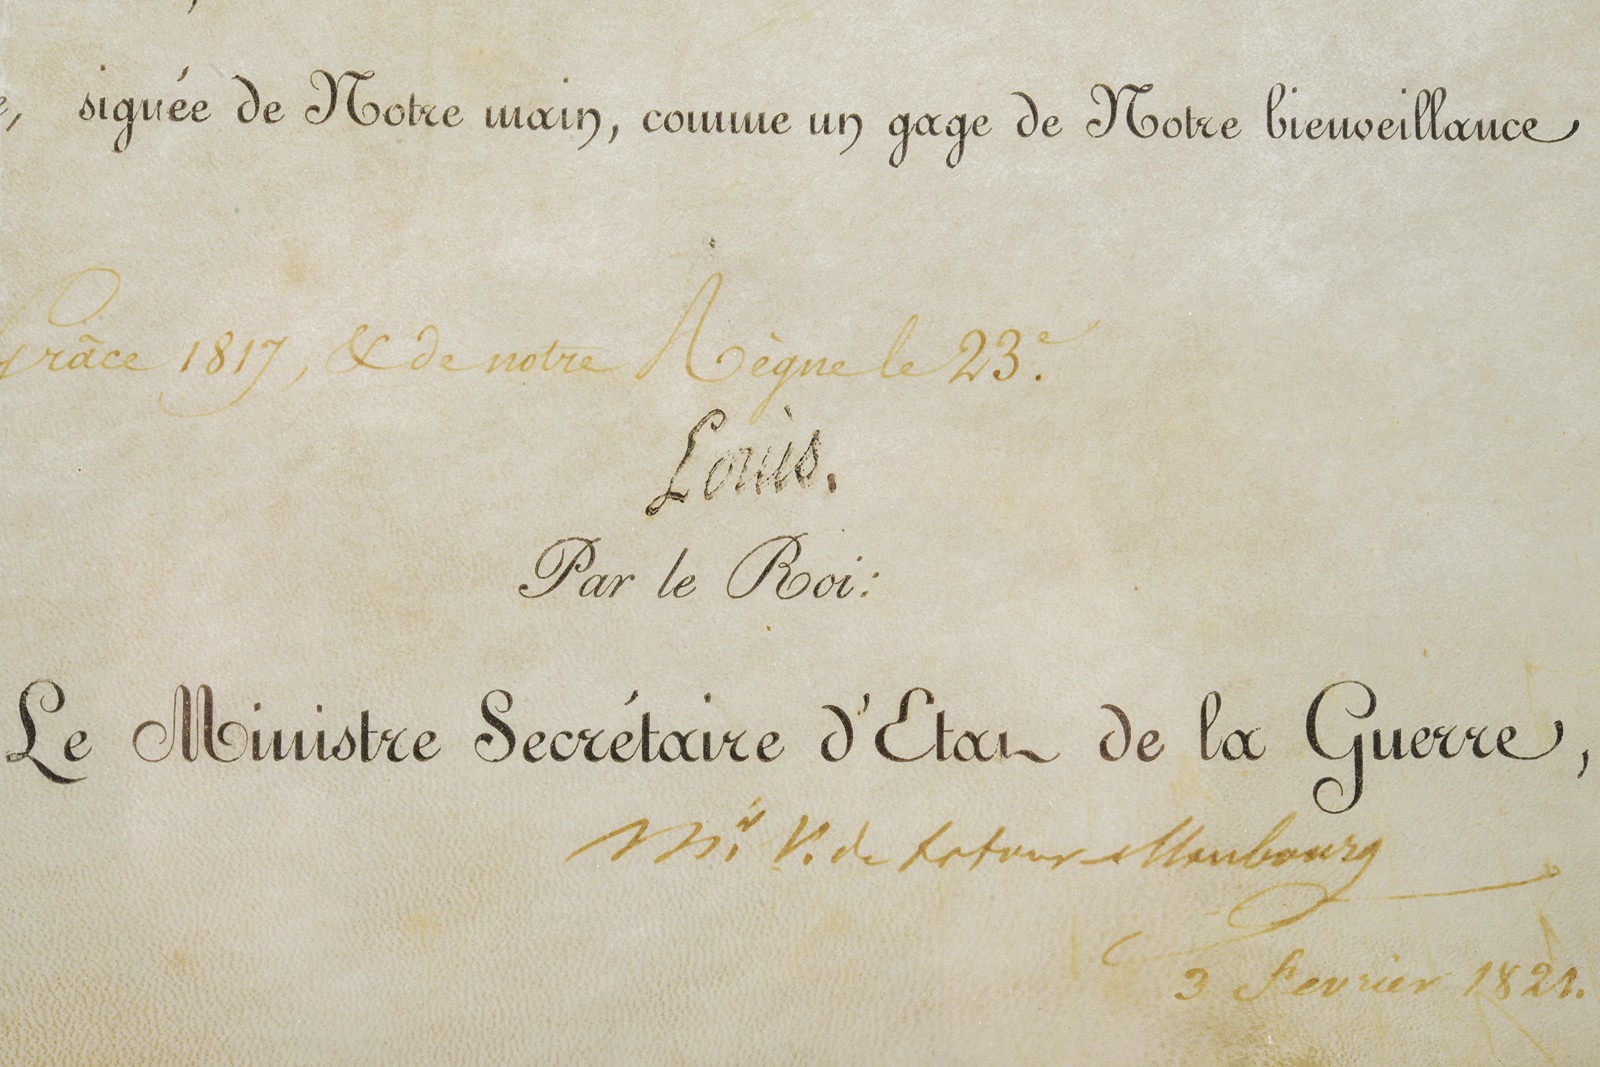 , signée de Notre main, comme un gage de Notre bienveillance
Grâce 1817, & de notre Règne le 23e.
Louis.
Par le Roi:
Le Ministre Secrétaire d'Etat de la Guerre,
Mis V. de Latour Maubourg
3 Fevrier 1821.